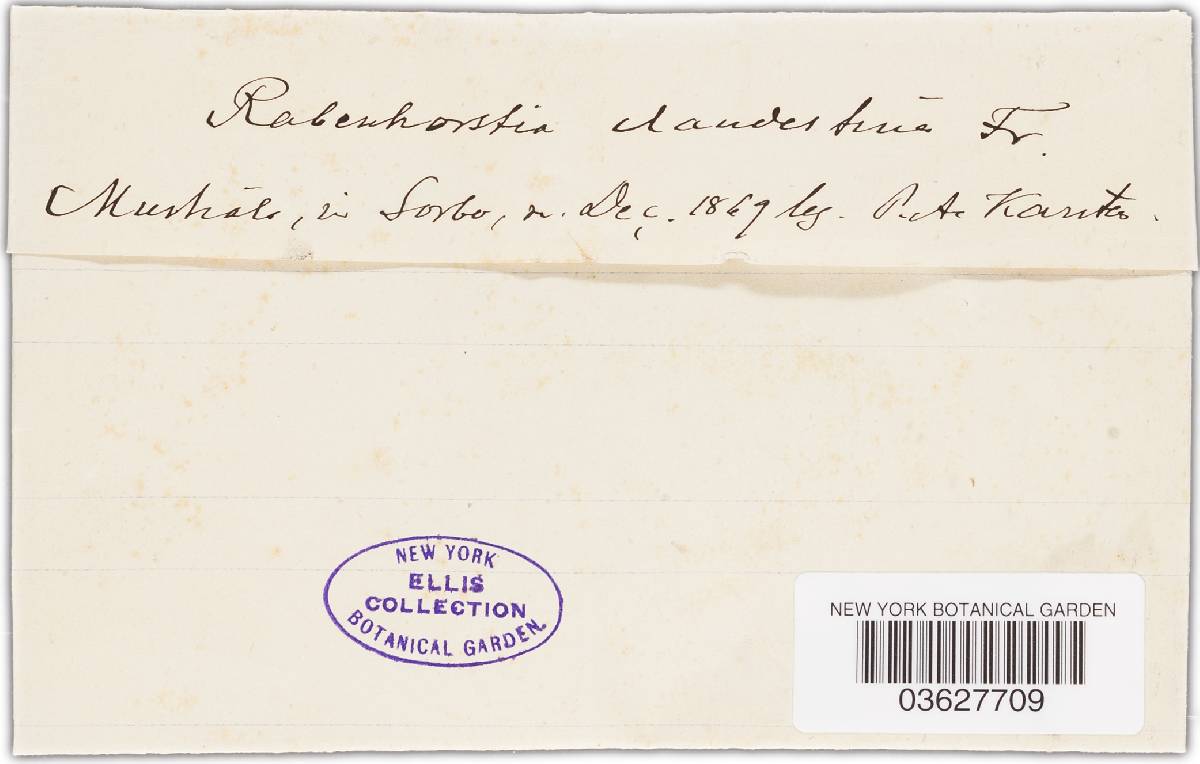 Rabenhorstia clandestina Fr.
Mustiala, in Sorbo, m. Dec. 1869 leg. P. A. Karsten.
NEW YORK
ELLIS
COLLECTION
BOTANICAL GARDEN.
NEW YORK BOTANICAL GARDEN
03627709